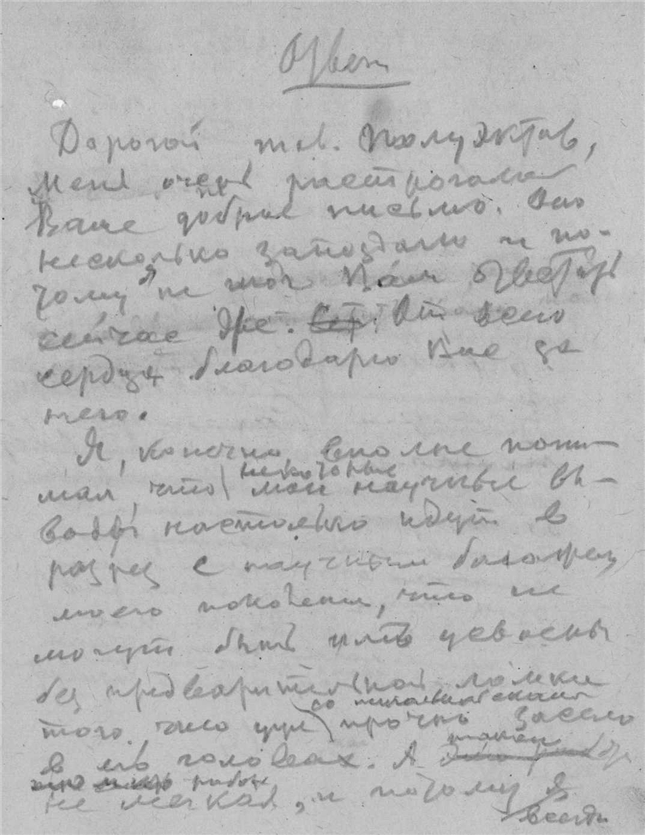 Ответ
Дорогой тов. Полуэктов,
меня очень растрогало
Ваше доброе письмо. Оно
несколько запоздало и по-
тому я не мог Вам ответить
сейчас же. От всего
сердца благодарю Вас за
него.
Я, конечно, вполне пони-
мал, что некоторые мои научные вы-
воды настолько идут в
разрез с научным багажом
моего поколения, что не
могут быть им усвоены
без предварительной ломки
того, что уже со школьной скамьи прочно засело
в его головах. А такая
работа не легкая, и потому я
всегда